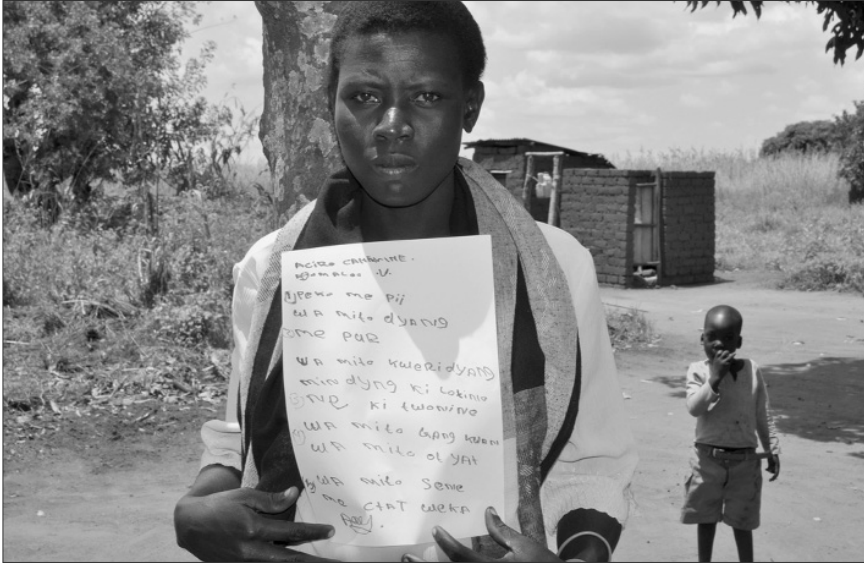 ACIRO CATHERINE.
NGOMALOO .V.
1) PEKO ME PIJ
WA mito dYANG
2) ME PUR
WA mito KWERI DYANG
min dyng Ki Lotino
3) NE Ki twonine
WA mito GANG KWAN
4) WA mito ot YAt
5) WA mito Seme
me CtAT WEKA